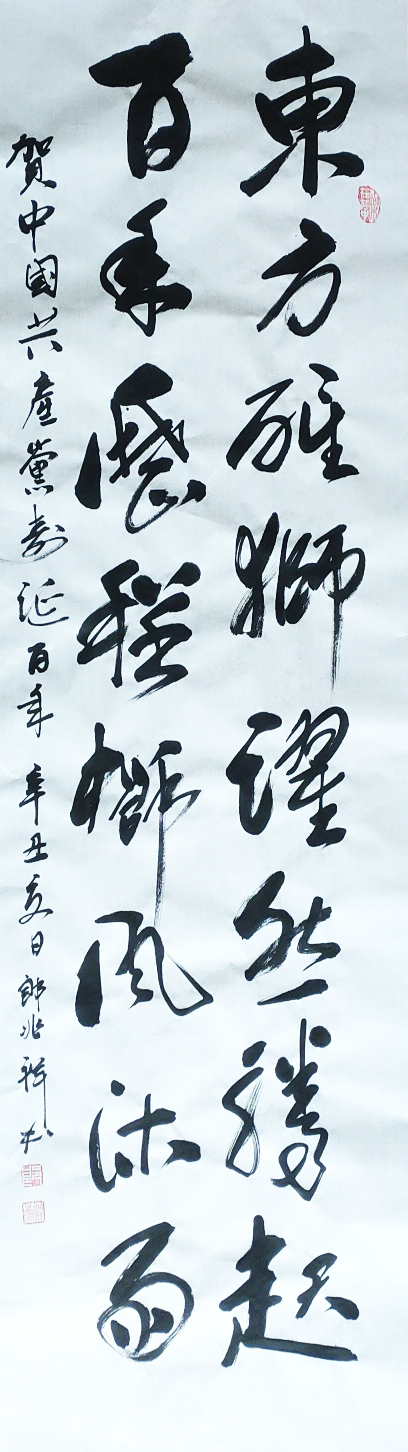 東方醒獅躍然騰起
百年歷程櫛風沐雨
賀中國共產黨壽誕百年 辛丑夏日 郎兆祥書